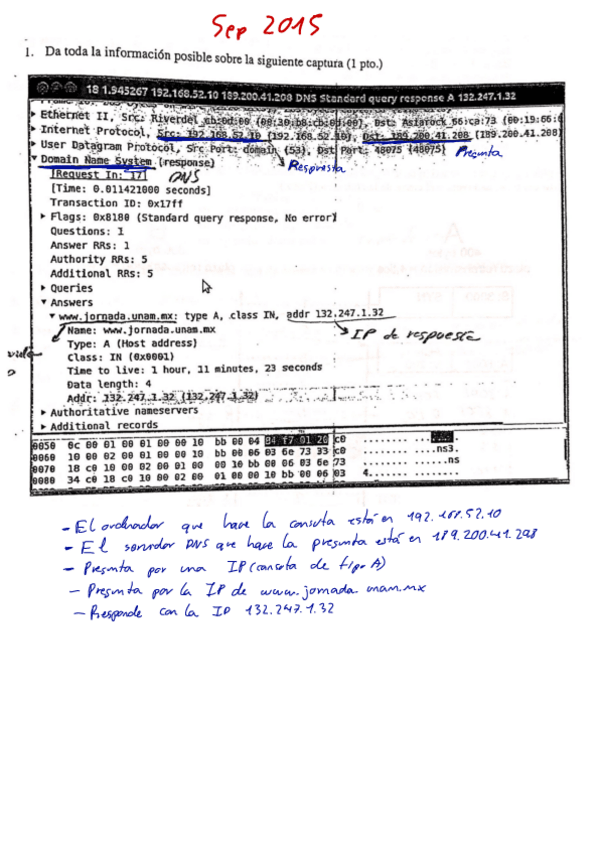 Sep 2015
1. Da toda la información posible sobre la siguiente captura (1 pto.)
18 1.945267 192.168.52.10 189.200.41.208 DNS Standard query response A 132.247.1.32
▸ Ethernet II, Src: Riverdel
▸ Internet Protocol, Src: 192.168.52.10 (192.168.52.10), Dst: 189.200.41.208 (189.200.41.208)
▸ User Datagram Protocol, Src Port: domain (53), Dst Port: 48075 (48075) Pregunta
▾ Domain Name System (response) Respuesta
[Request In: 17] DNS
[Time: 0.011421000 seconds]
Transaction ID: 0x17ff
▸ Flags: 0x8180 (Standard query response, No error)
Questions: 1
Answer RRs: 1
Authority RRs: 5
Additional RRs: 5
▸ Queries
▾ Answers
▾ www.jornada.unam.mx: type A, class IN, addr 132.247.1.32
Name: www.jornada.unam.mx IP de respuesta
Type: A (Host address)
Class: IN (0x0001)
Time to live: 1 hour, 11 minutes, 23 seconds
Data length: 4
Addr: 132.247.1.32 (132.247.1.32)
▸ Authoritative nameservers
▸ Additional records
0050 0c 00 01 00 01 00 00 10 bb 00 04 84 f7 01 20 c0
0060 10 00 02 00 01 00 00 10 bb 00 06 03 6e 73 33 c0 ........ ....ns3.
0070 18 c0 10 00 02 00 01 00 00 10 bb 00 06 03 6e 73 ........ ......ns
0080 34 c0 18 c0 10 00 02 00 01 00 00 10 bb 00 06 03 4....... ........
- El ordenador que hace la consulta está en 192.168.52.10
- El servidor DNS que hace la pregunta está en 189.200.41.208
- Pregunta por una IP (consulta de tipo A)
- Pregunta por la IP de www.jornada.unam.mx
- Responde con la IP 132.247.1.32